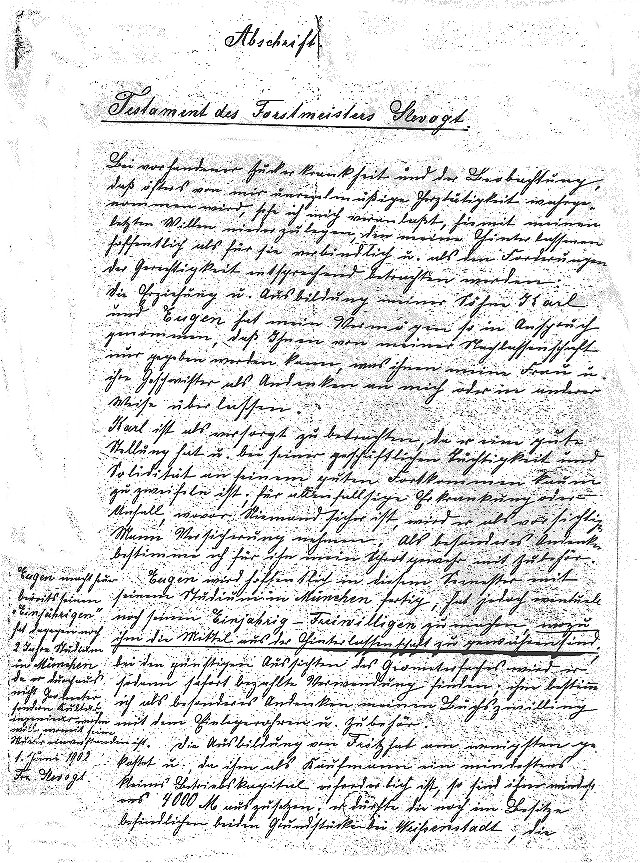 Abschrift.
Testament des Forstmeisters Slevogt
Bei vorhandener Zuckerkrankheit und der Beobachtung,
daß öfters von mir unregelmäßige Herztätigkeit wahrge-
nommen wird, sehe ich mich veranlaßt, hiermit meinen
letzten Willen niederzulegen, den meine Hinterlassenen
hoffentlich als für sie verbindlich u. als den Forderungen
der Gerechtigkeit entsprechend betrachten werden.
Die Erziehung u. Ausbildung meiner Söhne Karl
und Eugen hat mein Vermögen so in Anspruch
genommen, daß Ihnen von meiner Nachlassenschaft
nur gegeben werden kann, was ihnen meine Frau u.
ihre Geschwister als Andenken an mich oder in anderer
Weise überlassen.
Karl ist als versorgt zu betrachten, da er eine gute
Stellung hat u. bei seiner geschäftlichen Tüchtigkeit und
Solidität an seinem guten Fortkommen kaum
zu zweifeln ist. für allenfallsige Erkrankung oder
Unfall, wovor Niemand sicher ist, wird er als vorsichtiger
Mann Versicherung nehmen. Als besonderes Andenken
bestimme ich für ihn mein Schrotgewehr mit Zubehör.
Eugen wird hoffentlich in diesem Semester mit
seinem Studium in München fertig, hat jedoch eventuell
noch seinen Einjährig-Freiwilligen zu machen wozu
ihm die Mittel aus der Hinterlassenschaft zu gewähren sind,
bei den günstigen Aussichten des Geometerfaches wird er
sodann sofort bezahlte Verwendung finden; ihm bestimm
ich als besonderes Andenken meinen Büchszwilling
mit dem Einlegerohren u. Zubehör.
Die Ausbildung von Fritz hat am wenigsten ge-
kostet u. da ihm als Kaufmann ein mindestens
kleines Betriebskapital erforderlich ist, so sind ihm mindest
ens 4000 M auszusetzen. er dürfte die noch im Besitze
befindlichen beiden Grundstücke bei Weissenstadt, die
Eugen macht für
bereits seinen
"Einjährigen"
hat dagegen noch
2 Jahre Studium
in München
da er durchaus
nicht Geometer
sondern Kultur
ingenieur werden
will womit seine
Mutter einverstanden ist.
1. Juni 1902
Fr. Slevogt